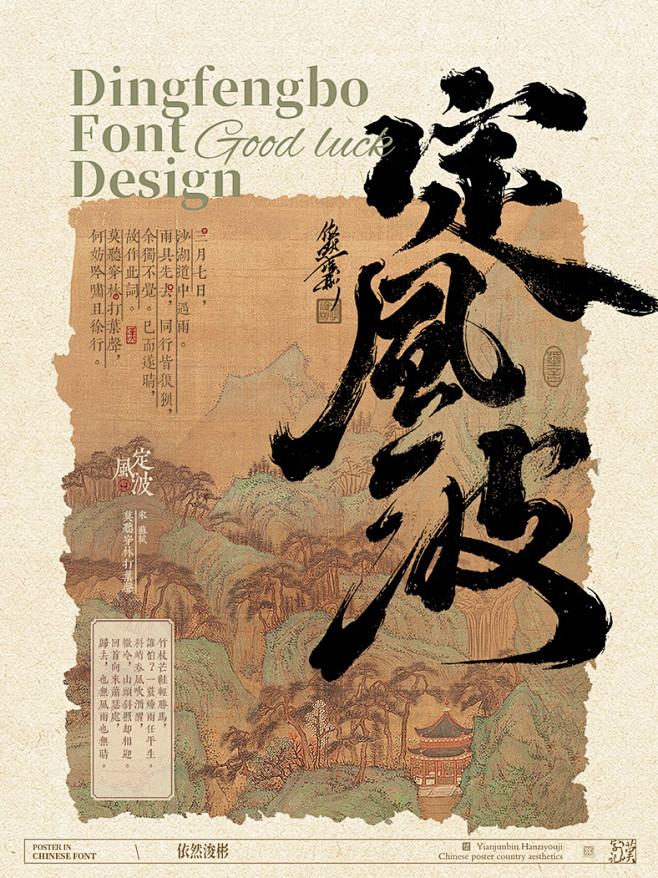 Dingfengbo
Font
Good luck
Design
定風波
三月七日，
沙湖道中遇雨。
雨具先去，同行皆狼狽，
余獨不覺。已而遂晴，
故作此詞。
莫聽穿林打葉聲，
何妨吟嘯且徐行。
定風波
宋 蘇軾
莫聽穿林打葉聲
竹杖芒鞋輕勝馬，
誰怕？一蓑煙雨任平生。
料峭春風吹酒醒，
微冷，山頭斜照却相迎。
回首向來蕭瑟處，
歸去，也無風雨也無晴。
POSTER IN
CHINESE FONT
\
依然浚彬
Yianjunbin Hanziyouji
Chinese poster country aesthetics